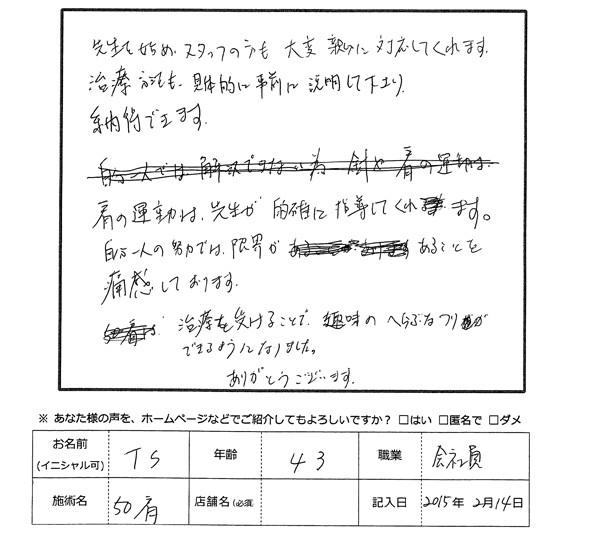 先生を始め、スタッフの方も 大変 親切に 対応してくれます。
治療方法も、具体的に 事前に 説明して下さり、
納得できます。
自分一人では 解決できない為 針や 肩の運動は
肩の運動は、先生が 的確に 指導してくれます。
自分一人の努力では、限界が あることを
痛感しております。
治療を受けることで、趣味の へらぶなつりが
できるようになりました。
ありがとうございます。
※ あなた様の声を、ホームページなどでご紹介してもよろしいですか? □はい □匿名で □ダメ
お名前 (イニシャル可) TS 年齢 43 職業 会社員
施術名 50肩 店舗名 (必須) 記入日 2015年 2月14日